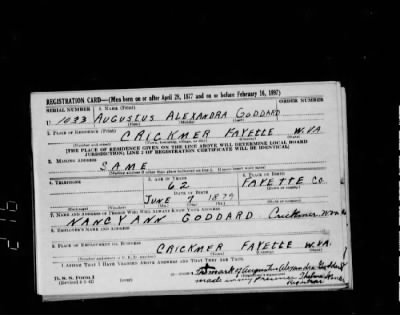 REGISTRATION CARD—(Men born on or after April 28, 1877 and on or before February 16, 1897)
SERIAL NUMBER 1. NAME (Print) ORDER NUMBER
U 1033 AUGUSTUS ALEXANDRA GODDARD
(First) (Middle) (Last)
2. PLACE OF RESIDENCE (Print)
CRICKMER FAYETTE W.VA.
(Number and street) (Town, township, village, or city) (County) (State)
[THE PLACE OF RESIDENCE GIVEN ON THE LINE ABOVE WILL DETERMINE LOCAL BOARD
JURISDICTION; LINE 2 OF REGISTRATION CERTIFICATE WILL BE IDENTICAL]
3. MAILING ADDRESS
SAME
[Mailing address if other than place indicated on line 2. If same insert word same]
4. TELEPHONE 5. AGE IN YEARS 6. PLACE OF BIRTH
62 FAYETTE CO.
DATE OF BIRTH
JUNE 7 1879
7. NAME AND ADDRESS OF PERSON WHO WILL ALWAYS KNOW YOUR ADDRESS
NANCY ANN GODDARD Crickmer
8. EMPLOYER'S NAME AND ADDRESS
9. PLACE OF EMPLOYMENT OR BUSINESS
CRICKMER FAYETTE W.VA.
(Number and street or R. F. D. number) (Town) (County) (State)
I AFFIRM THAT I HAVE VERIFIED ABOVE ANSWERS AND THAT THEY ARE TRUE.
mark of Augustus Alexandra Goddard
D. S. S. Form 1 made in my presence Thelma
(over) Registrar